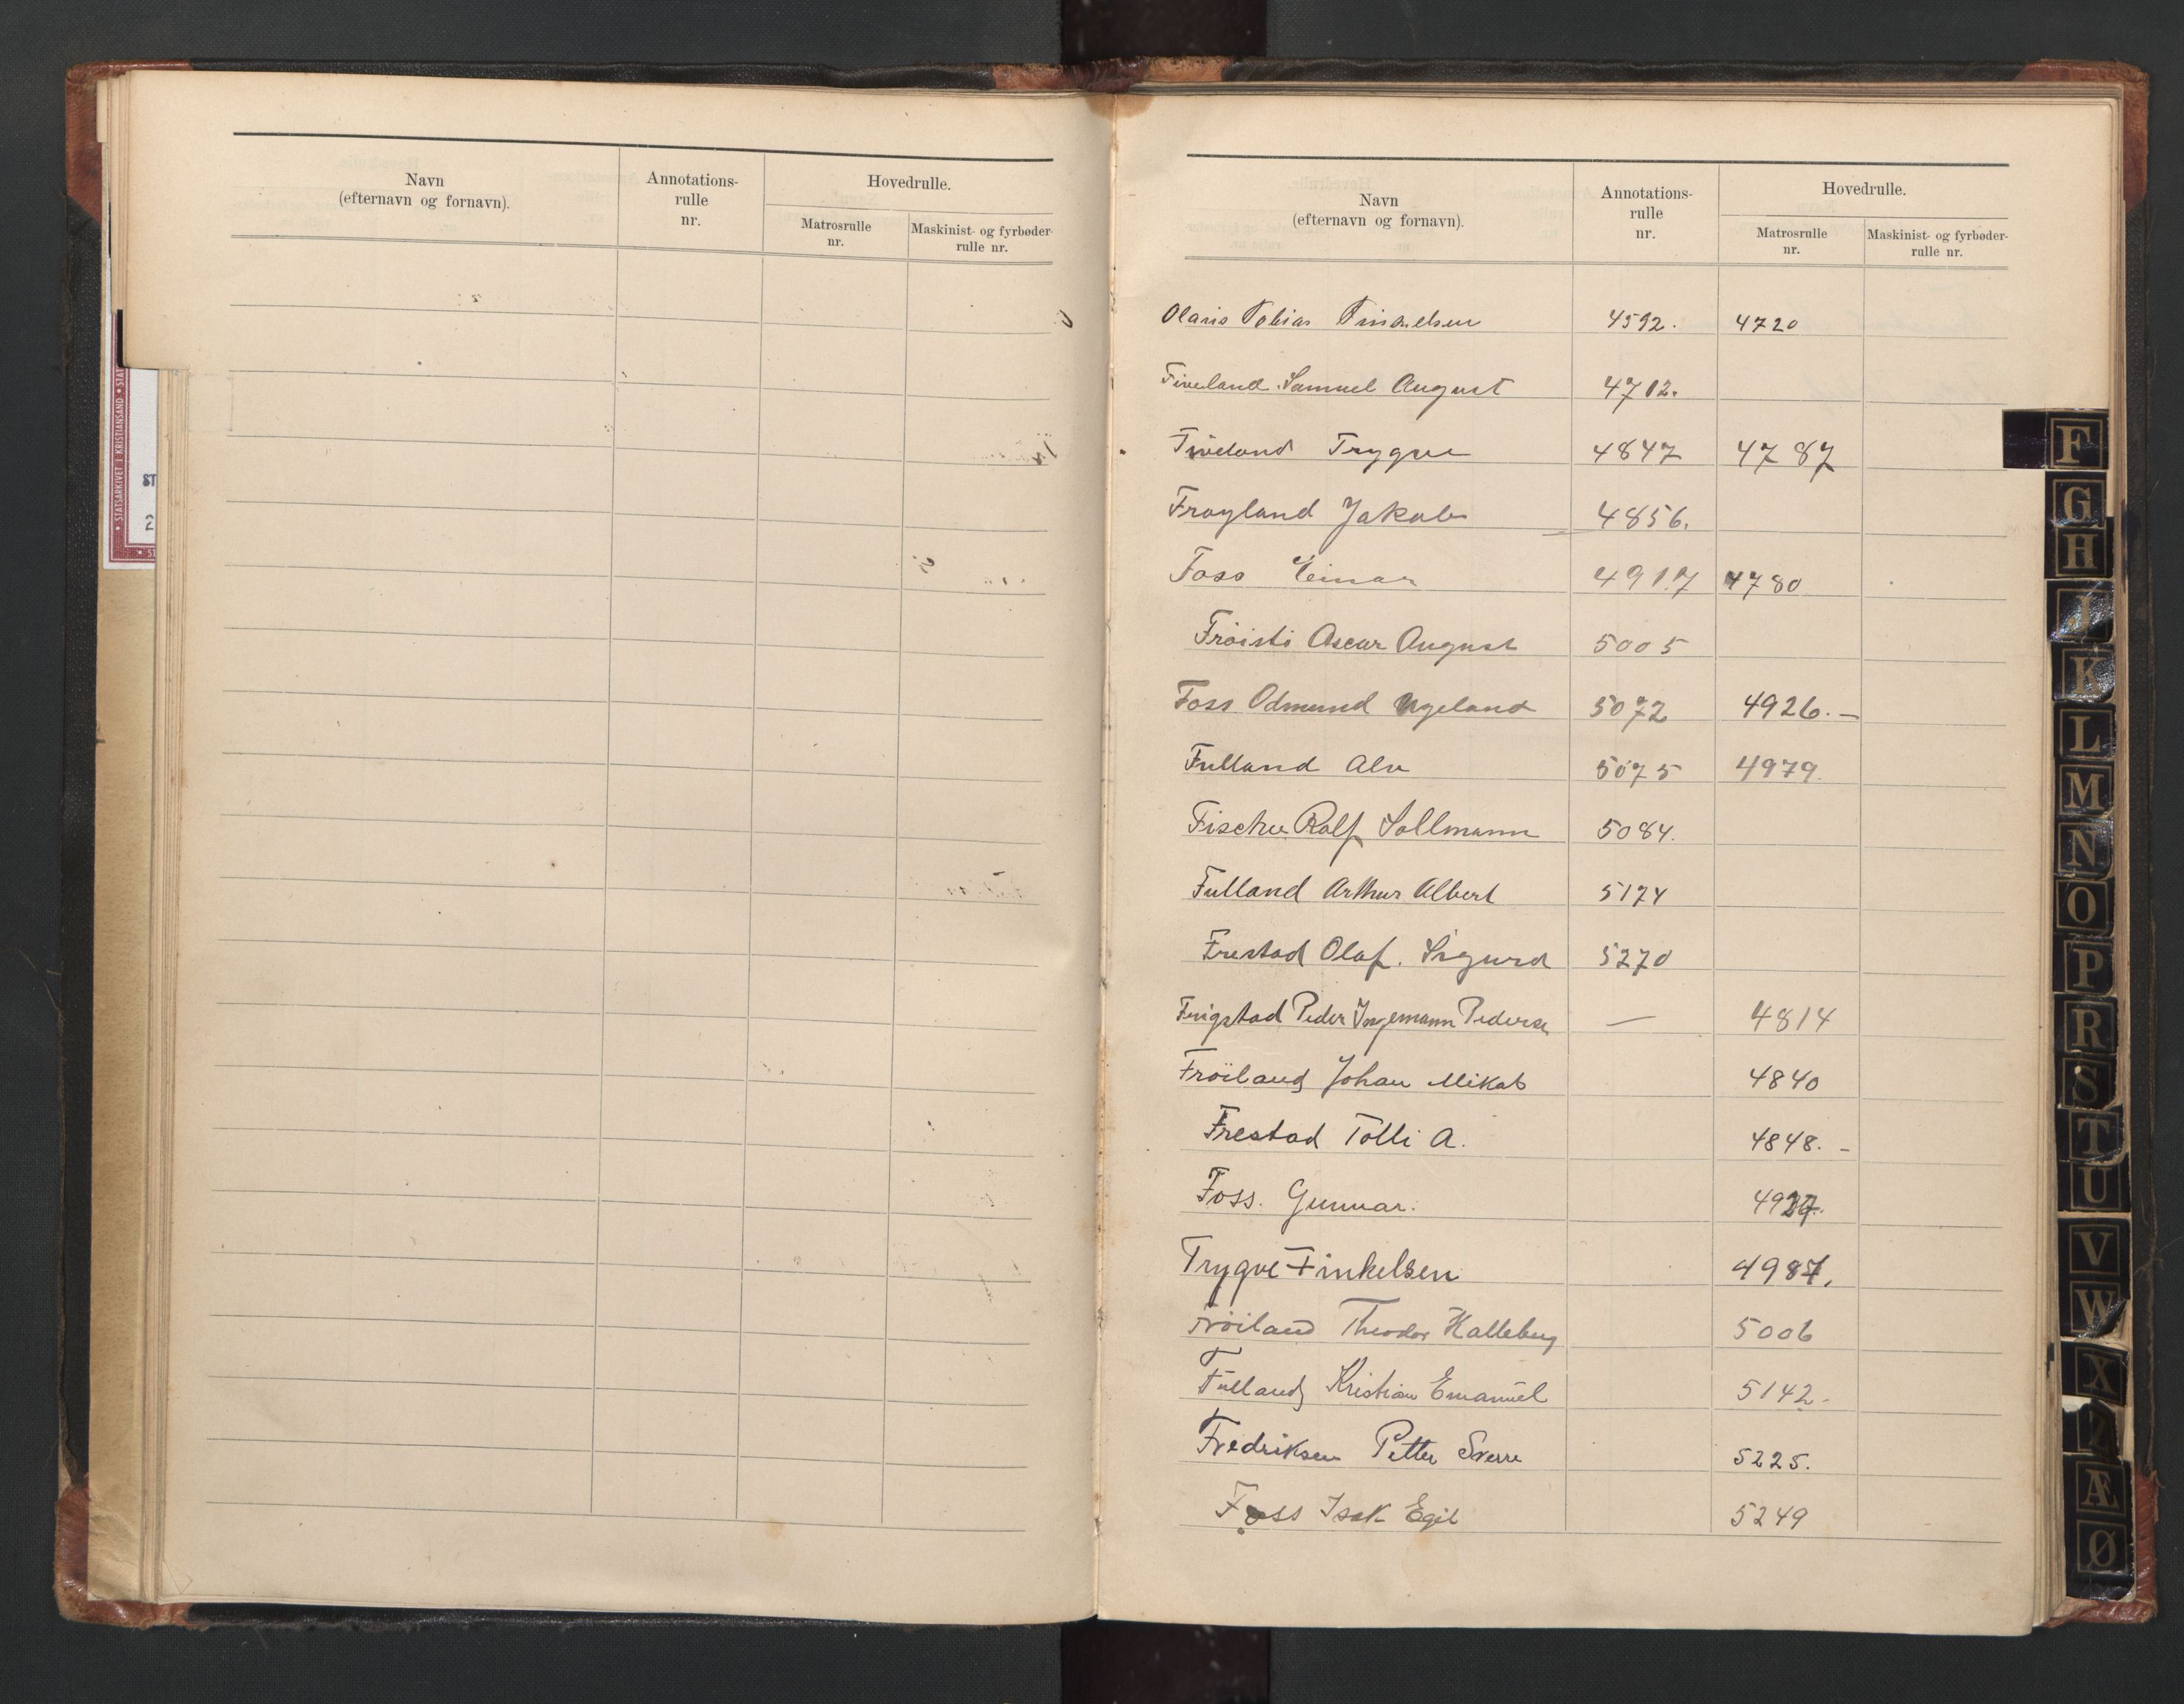 Navn
(efternavn og fornavn).
Annotations-
rulle
nr.
Hovedrulle.
Matrosrulle
nr.
Maskinist- og fyrbøder-
rulle nr.
STATSARKIVET I KRISTIANSAND
ST
2
Navn
(efternavn og fornavn).
Annotations-
rulle
nr.
Hovedrulle.
Matrosrulle
nr.
Maskinist- og fyrbøder-
rulle nr.
Tobias 4592. 4720
Fiveland Samuel August 4712.
Fiveland Trygve 4847 4787
Frøyland Jakob 4856.
Foss Einar 4917 4780
Fröisti Oscar August 5005
Foss Odmund Ugeland 5072 4926.–
Fulland Alv 5075 4979.
Fischer Rolf Sollmann 5084.
Fulland Arthur Albert 5174
Frestad Olaf. Sigurd 5270
Peder Ingemann Peders — 4814
Fröiland Johan Mikal 4840
Frestad Tolli A. 4848. –
Foss. Gunnar. 4927.
Trygve Finkelsen 4987.
Fröiland Theodor Halleberg 5006
Fulland Kristian Emanuel 5142.
Fredriksen Petter Sverre 5225.
Foss Isak Egil 5249
F
G
H
J
K
L
M
N
O
P
R
S
T
U
V
W
X
Æ
Ø